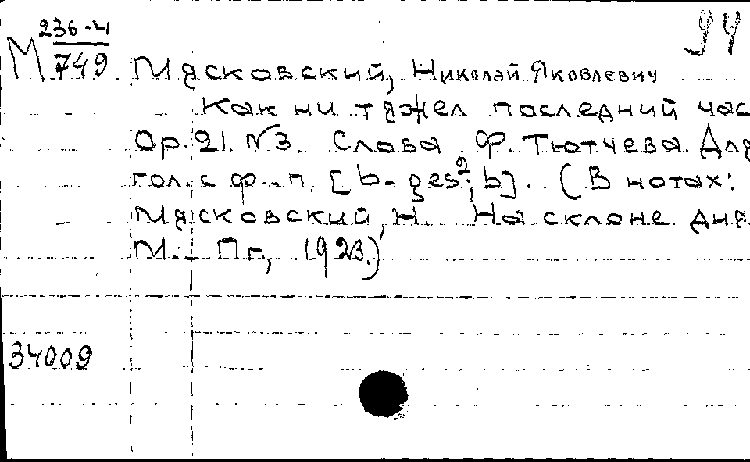 94
М 236-4
749
Мясковский, Николай Яковлевич
Как ни тяжел последний час
Op. 21. №3. Слова Ф. Тютчева. Для
гол. с ф.-п. [b-ges²; b]. (В нотах:
Мясковский, Н. На склоне дня.
М.-Пг, 1923.)
34009